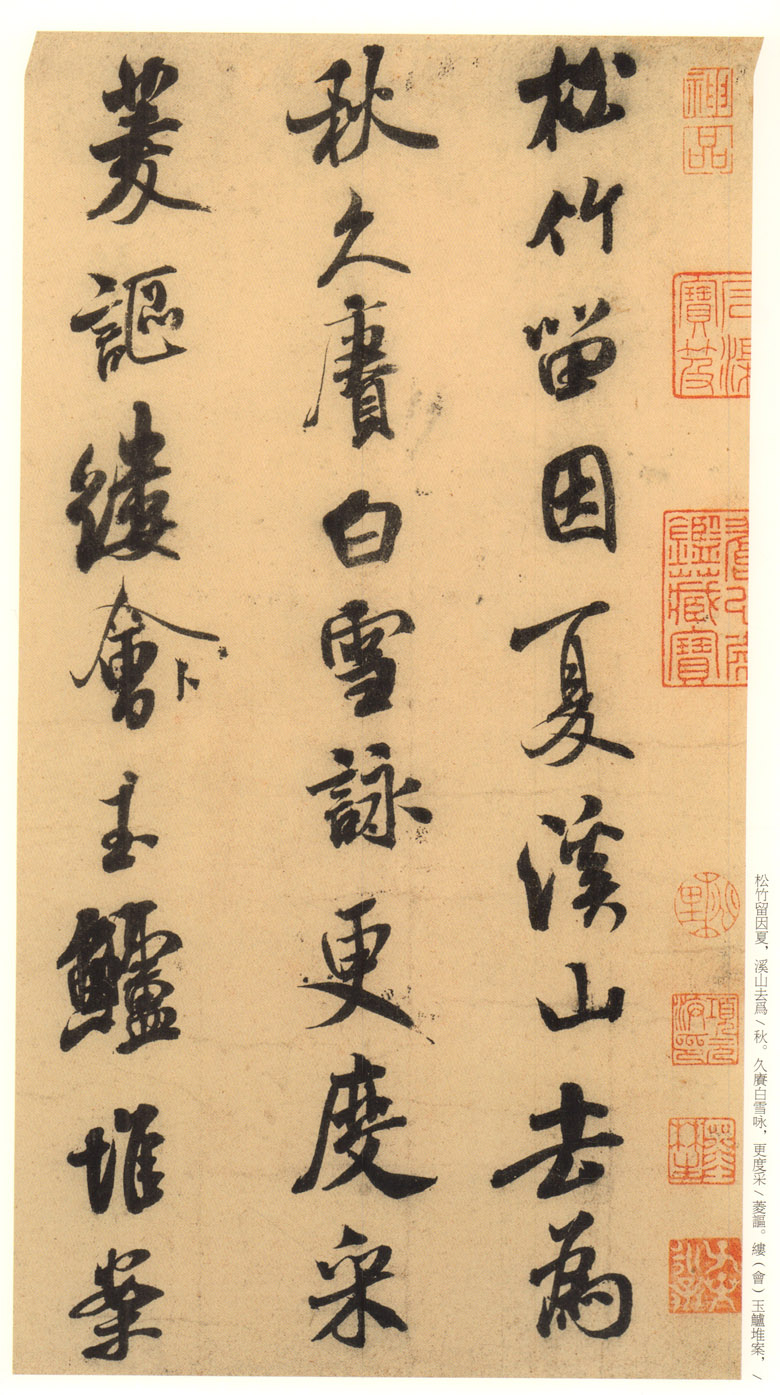 松竹留因夏溪山去為
秋久賡白雪詠更度采
菱謳縷會卜玉鱸堆案
神品
鑑藏寶
松竹留因夏，溪山去爲/秋。久賡白雪咏，更度采/菱謳。縷（會）玉鱸堆案，/